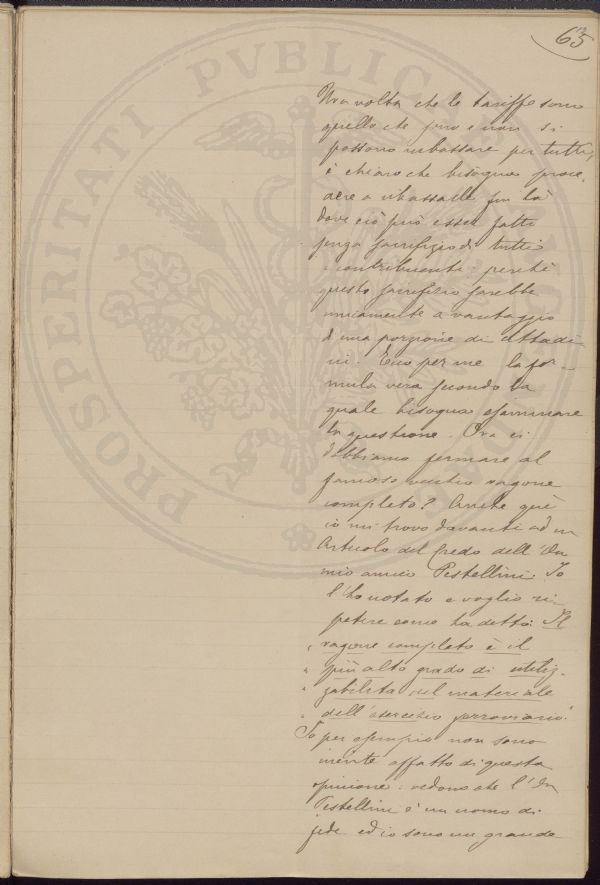 65
PROSPERITATI PVBLICAE
Una volta che le tariffe sono
quello che sono e non si
possono ribassare per tutti,
è chiaro che bisogna proce
dere a ribassarle fin là
dove ciò può esser fatto
senza sacrifizio di tutti i
contribuenti: perchè
questo sacrifizio sarebbe
unicamente a vantaggio
d'una porzione di cittadi
ni. Ecco per me la for-
mula vera secondo la
quale bisogna esaminare
la questione. Ora ci
dobbiamo fermare al
famoso vecchio vagone
completo? Anche qui
io mi trovo davanti ad un
Articolo del Credo dell'On
mio amico Pestellini. Io
l'ho notato e voglio ri-
petere come ha detto: Il
" vagone completo è il
" più alto grado di utiliz-
" zabilità del materiale
" dell'esercizio ferroviario."
Io per esempio non sono
niente affatto di questa
opinione: vedono che l'On
Pestellini è un uomo di
fede ed io sono un grande